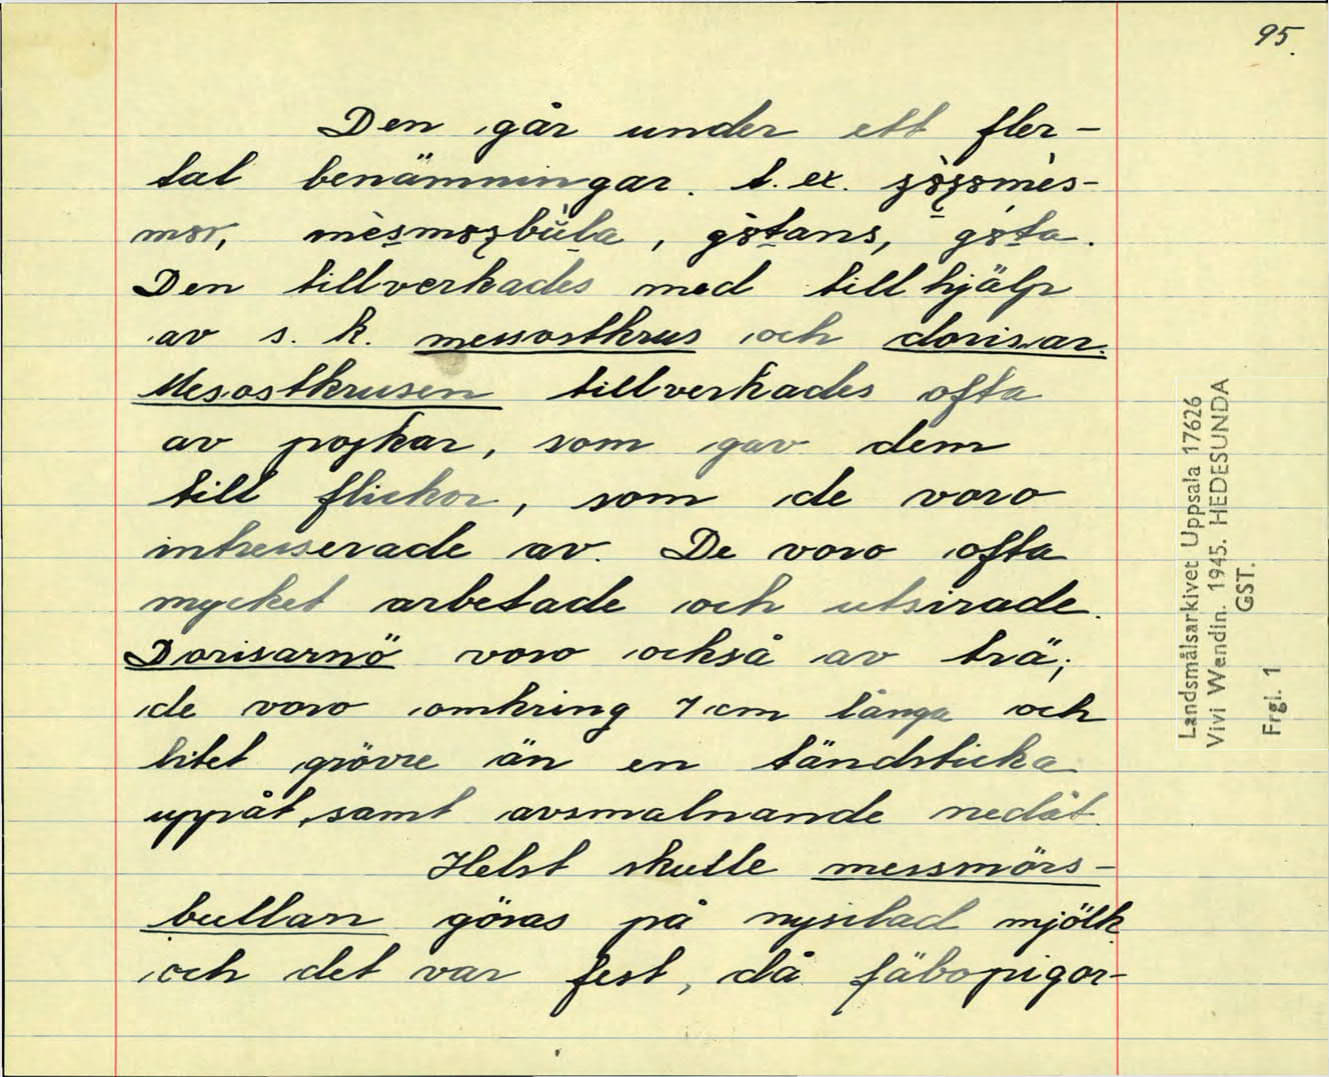 95.
Den går under ett fler-
tal benämningar. t. ex.
götans, göta.
Den tillverkades med tillhjälp
av s. k. messostkrus och dorisar.
Mesostkrusen tillverkades ofta
av pojkar, som gav dem
till flickor, som de voro
intresserade av. De voro ofta
mycket arbetade och utsirade.
Dorisarnö voro också av trä;
de voro omkring 7 cm långa och
litet grövre än en tändsticka
uppåt, samt avsmalnande nedåt.
Helst skulle messmörs-
bullan göras på nysilad mjölk
och det var fest, då fäbopigor-
Landsmålsarkivet Uppsala 17626
Vivi Wendin. 1945. HEDESUNDA
GST.
Frgl. 1